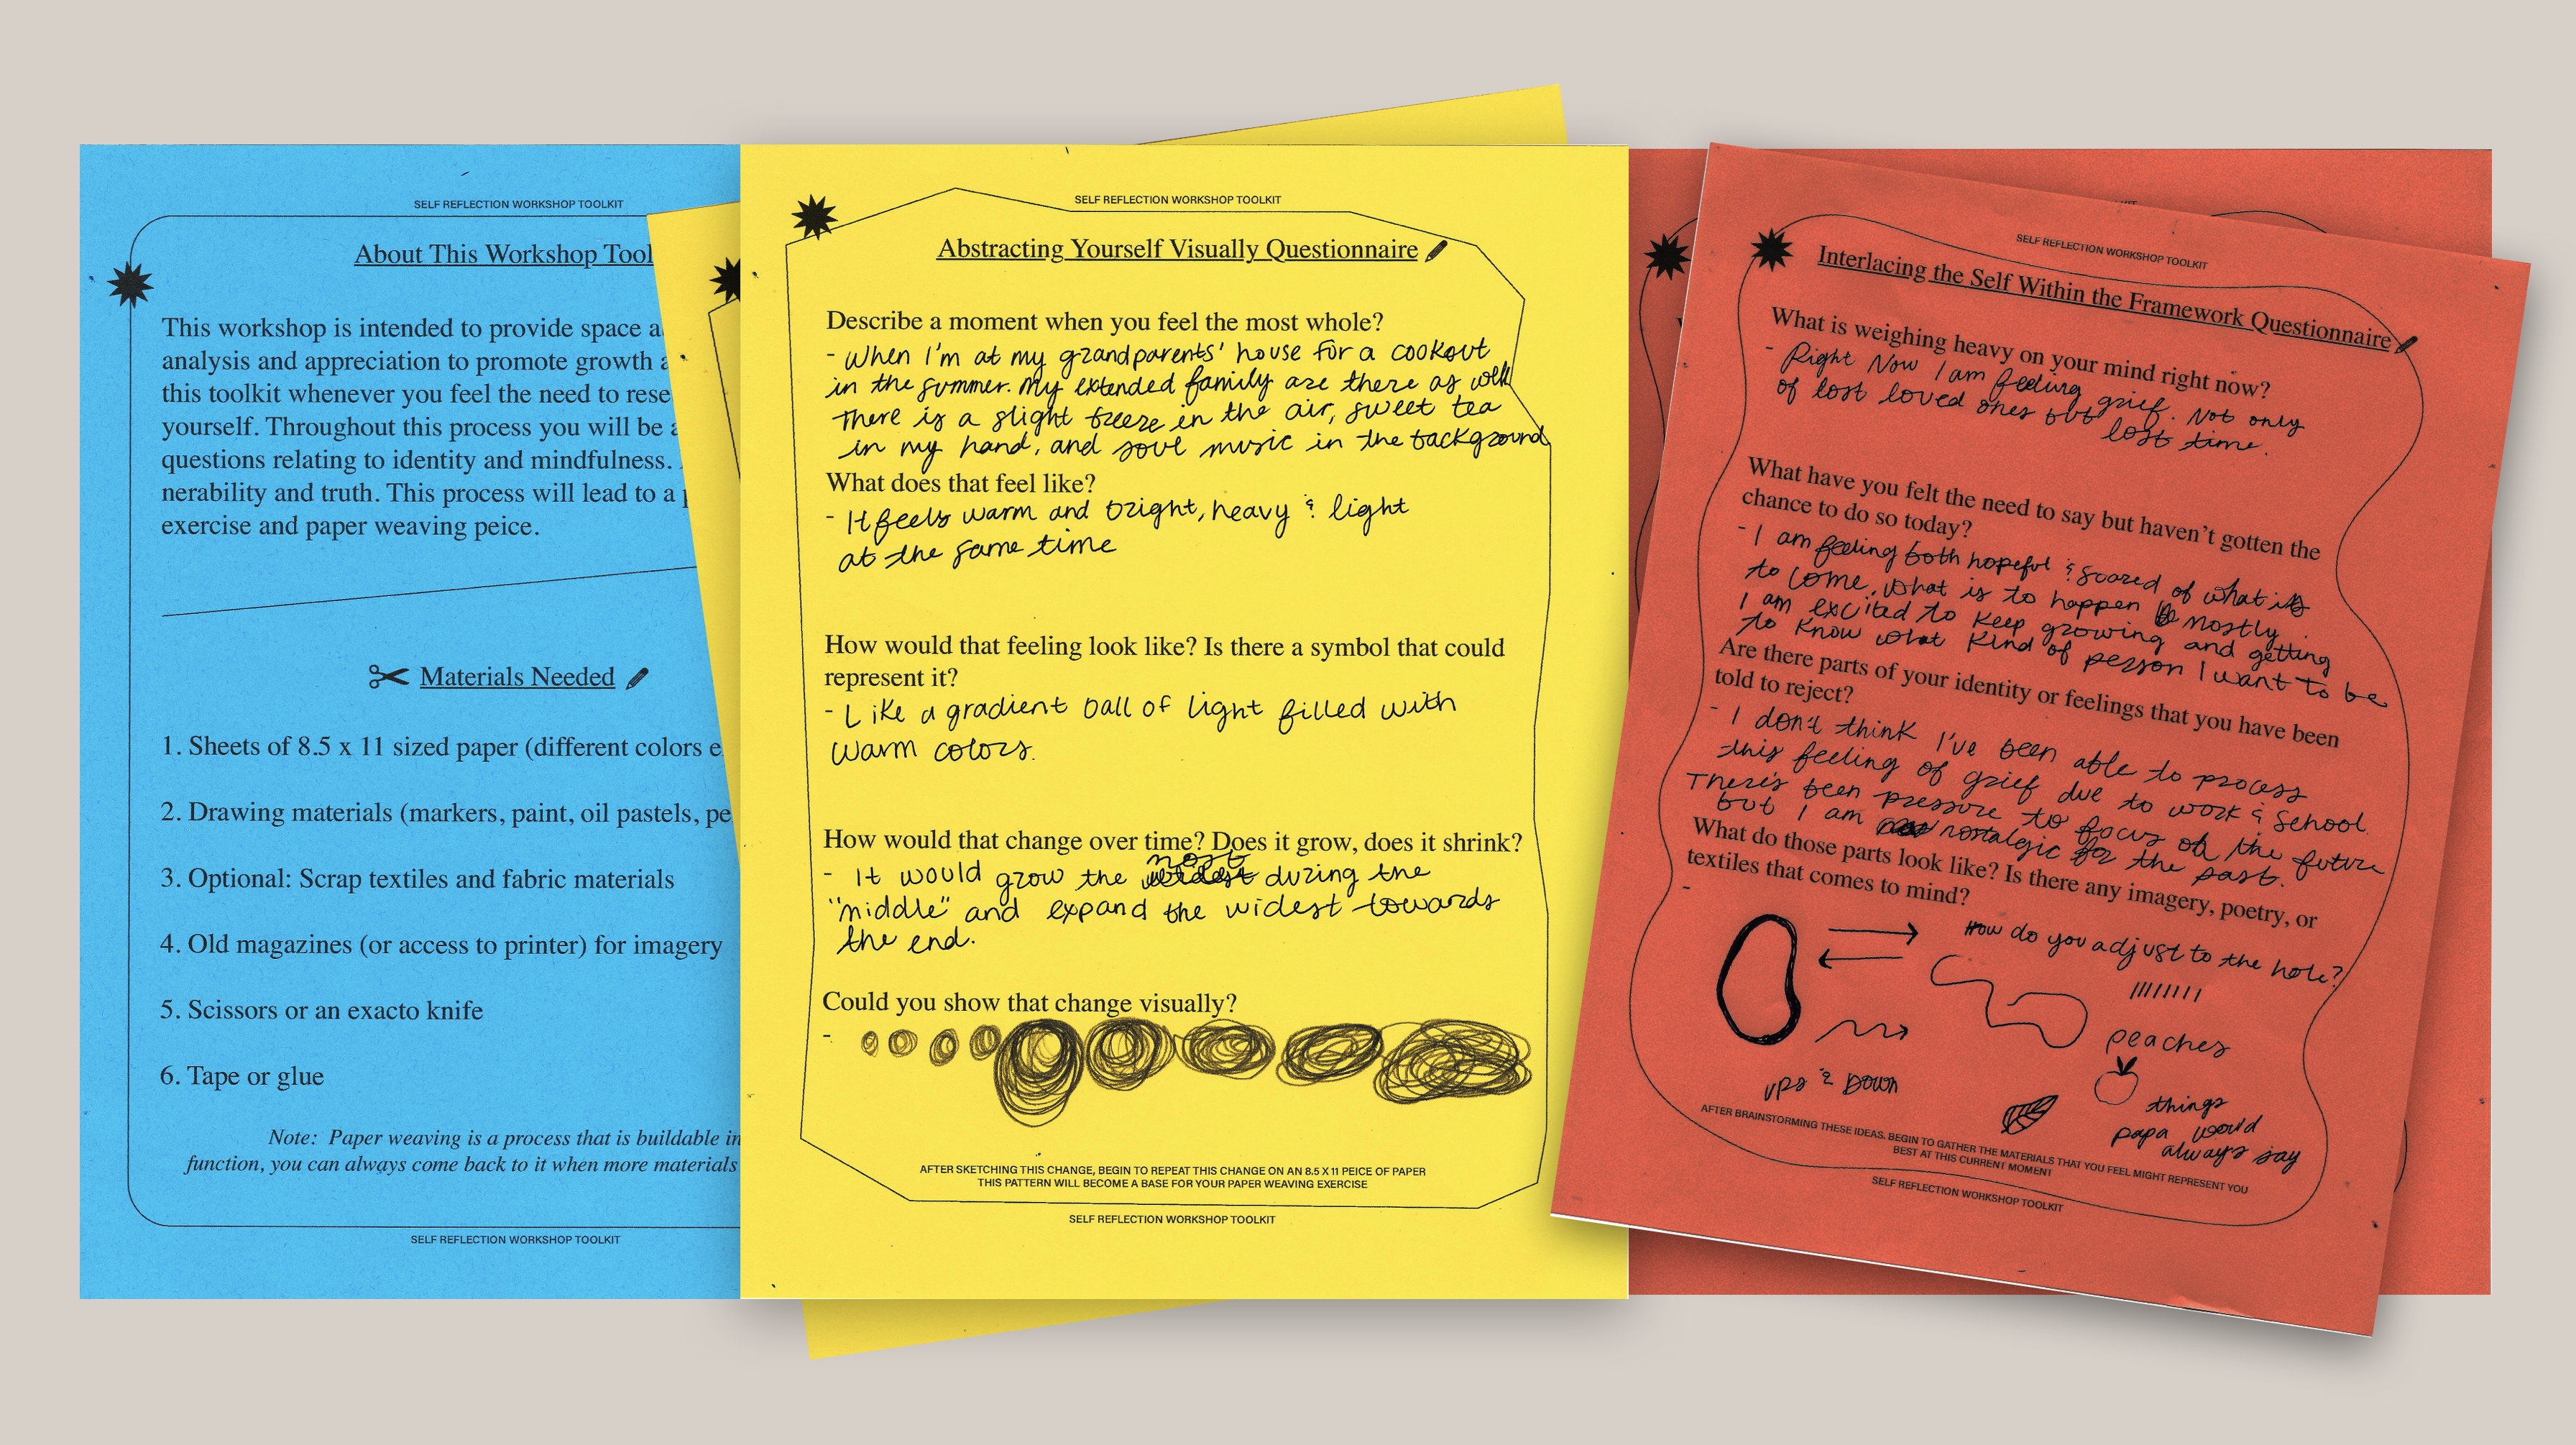 SELF REFLECTION WORKSHOP TOOLKIT
About This Workshop Tool
This workshop is intended to provide space a
analysis and appreciation to promote growth a
this toolkit whenever you feel the need to rese
yourself. Throughout this process you will be a
questions relating to identity and mindfulness.
nerability and truth. This process will lead to a p
exercise and paper weaving peice.
Materials Needed
1. Sheets of 8.5 x 11 sized paper (different colors e
2. Drawing materials (markers, paint, oil pastels, pe
3. Optional: Scrap textiles and fabric materials
4. Old magazines (or access to printer) for imagery
5. Scissors or an exacto knife
6. Tape or glue
Note: Paper weaving is a process that is buildable in
function, you can always come back to it when more materials
SELF REFLECTION WORKSHOP TOOLKIT
SELF REFLECTION WORKSHOP TOOLKIT
Abstracting Yourself Visually Questionnaire
Describe a moment when you feel the most whole?
- When I'm at my grandparents' house for a cookout
in the summer. My extended family are there as well
There is a slight breeze in the air, sweet tea
in my hand, and soul music in the background
What does that feel like?
- It feels warm and bright, heavy & light
at the same time
How would that feeling look like? Is there a symbol that could
represent it?
- Like a gradient ball of light filled with
warm colors.
How would that change over time? Does it grow, does it shrink?
- It would grow the most during the
"middle" and expand the widest towards
the end.
Could you show that change visually?
-
AFTER SKETCHING THIS CHANGE, BEGIN TO REPEAT THIS CHANGE ON AN 8.5 X 11 PEICE OF PAPER
THIS PATTERN WILL BECOME A BASE FOR YOUR PAPER WEAVING EXERCISE
SELF REFLECTION WORKSHOP TOOLKIT
KIT
SELF REFLECTION WORKSHOP TOOLKIT
Interlacing the Self Within the Framework Questionnaire
What is weighing heavy on your mind right now?
- Right Now I am feeling grief. Not only
of lost loved ones but lost time.
What have you felt the need to say but haven't gotten the
chance to do so today?
- I am feeling both hopeful & scared of what is
to come. What is to happen mostly
I am excited to keep growing and getting
to know what kind of person I want to be
Are there parts of your identity or feelings that you have been
told to reject?
- I don't think I've been able to process
this feeling of grief due to work & school
There's been pressure to focus on the future
but I am nostalgic for the past.
What do those parts look like? Is there any imagery, poetry, or
textiles that comes to mind?
-
How do you adjust to the hole?
peaches
ups & Down
things
papa would
always say
AFTER BRAINSTORMING THESE IDEAS. BEGIN TO GATHER THE MATERIALS THAT YOU FEEL MIGHT REPRESENT YOU
BEST AT THIS CURRENT MOMENT
SELF REFLECTION WORKSHOP TOOLKIT